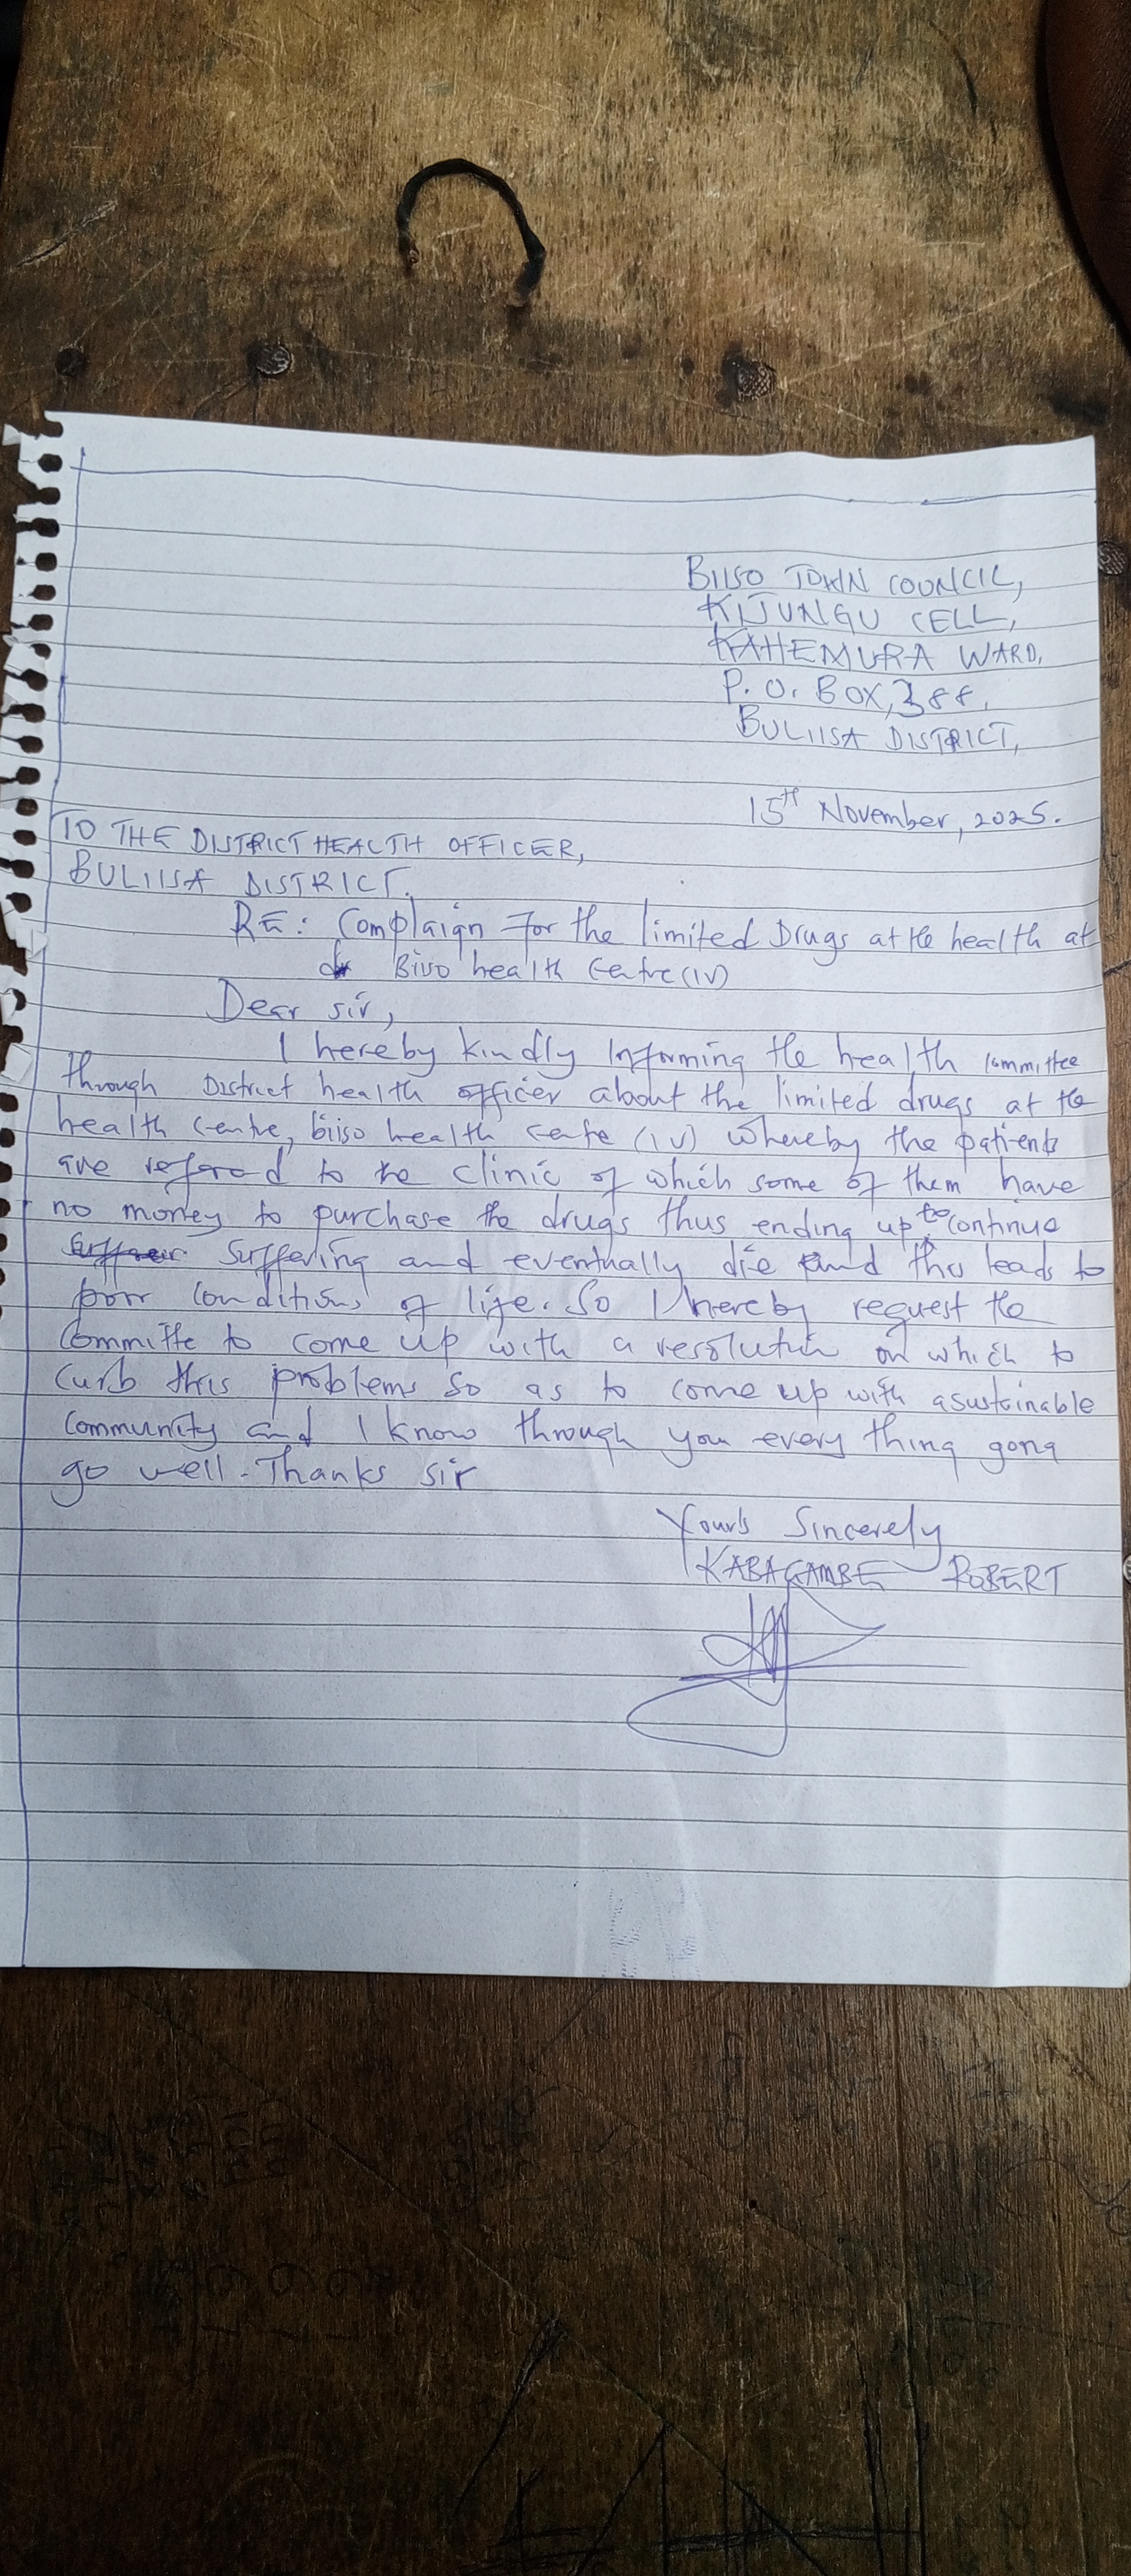 BIISO TOWN COUNCIL,
KIJUNGU CELL,
KAHEMURA WARD,
P.O. BOX, 388,
BULIISA DISTRICT,
15th November, 2025.
TO THE DISTRICT HEALTH OFFICER,
BULIISA DISTRICT.
RE: Complaign for the limited Drugs at the health at
Biiso health Centre (IV)
Dear sir,
I hereby kindly Informing the health committee
through District health officer about the limited drugs at the
health centre, biiso health cente (IV) whereby the patients
are refered to the clinic of which some of them have
no money to purchase the drugs thus ending up to continue
suffering and eventually die and this leads to
poor conditions of life. So I hereby request the
committe to come up with a resolution on which to
curb this problems so as to come up with asustainable
community and I know through you every thing gona
go well. Thanks sir
Yours Sincerely
KABAGAMBE ROBERT